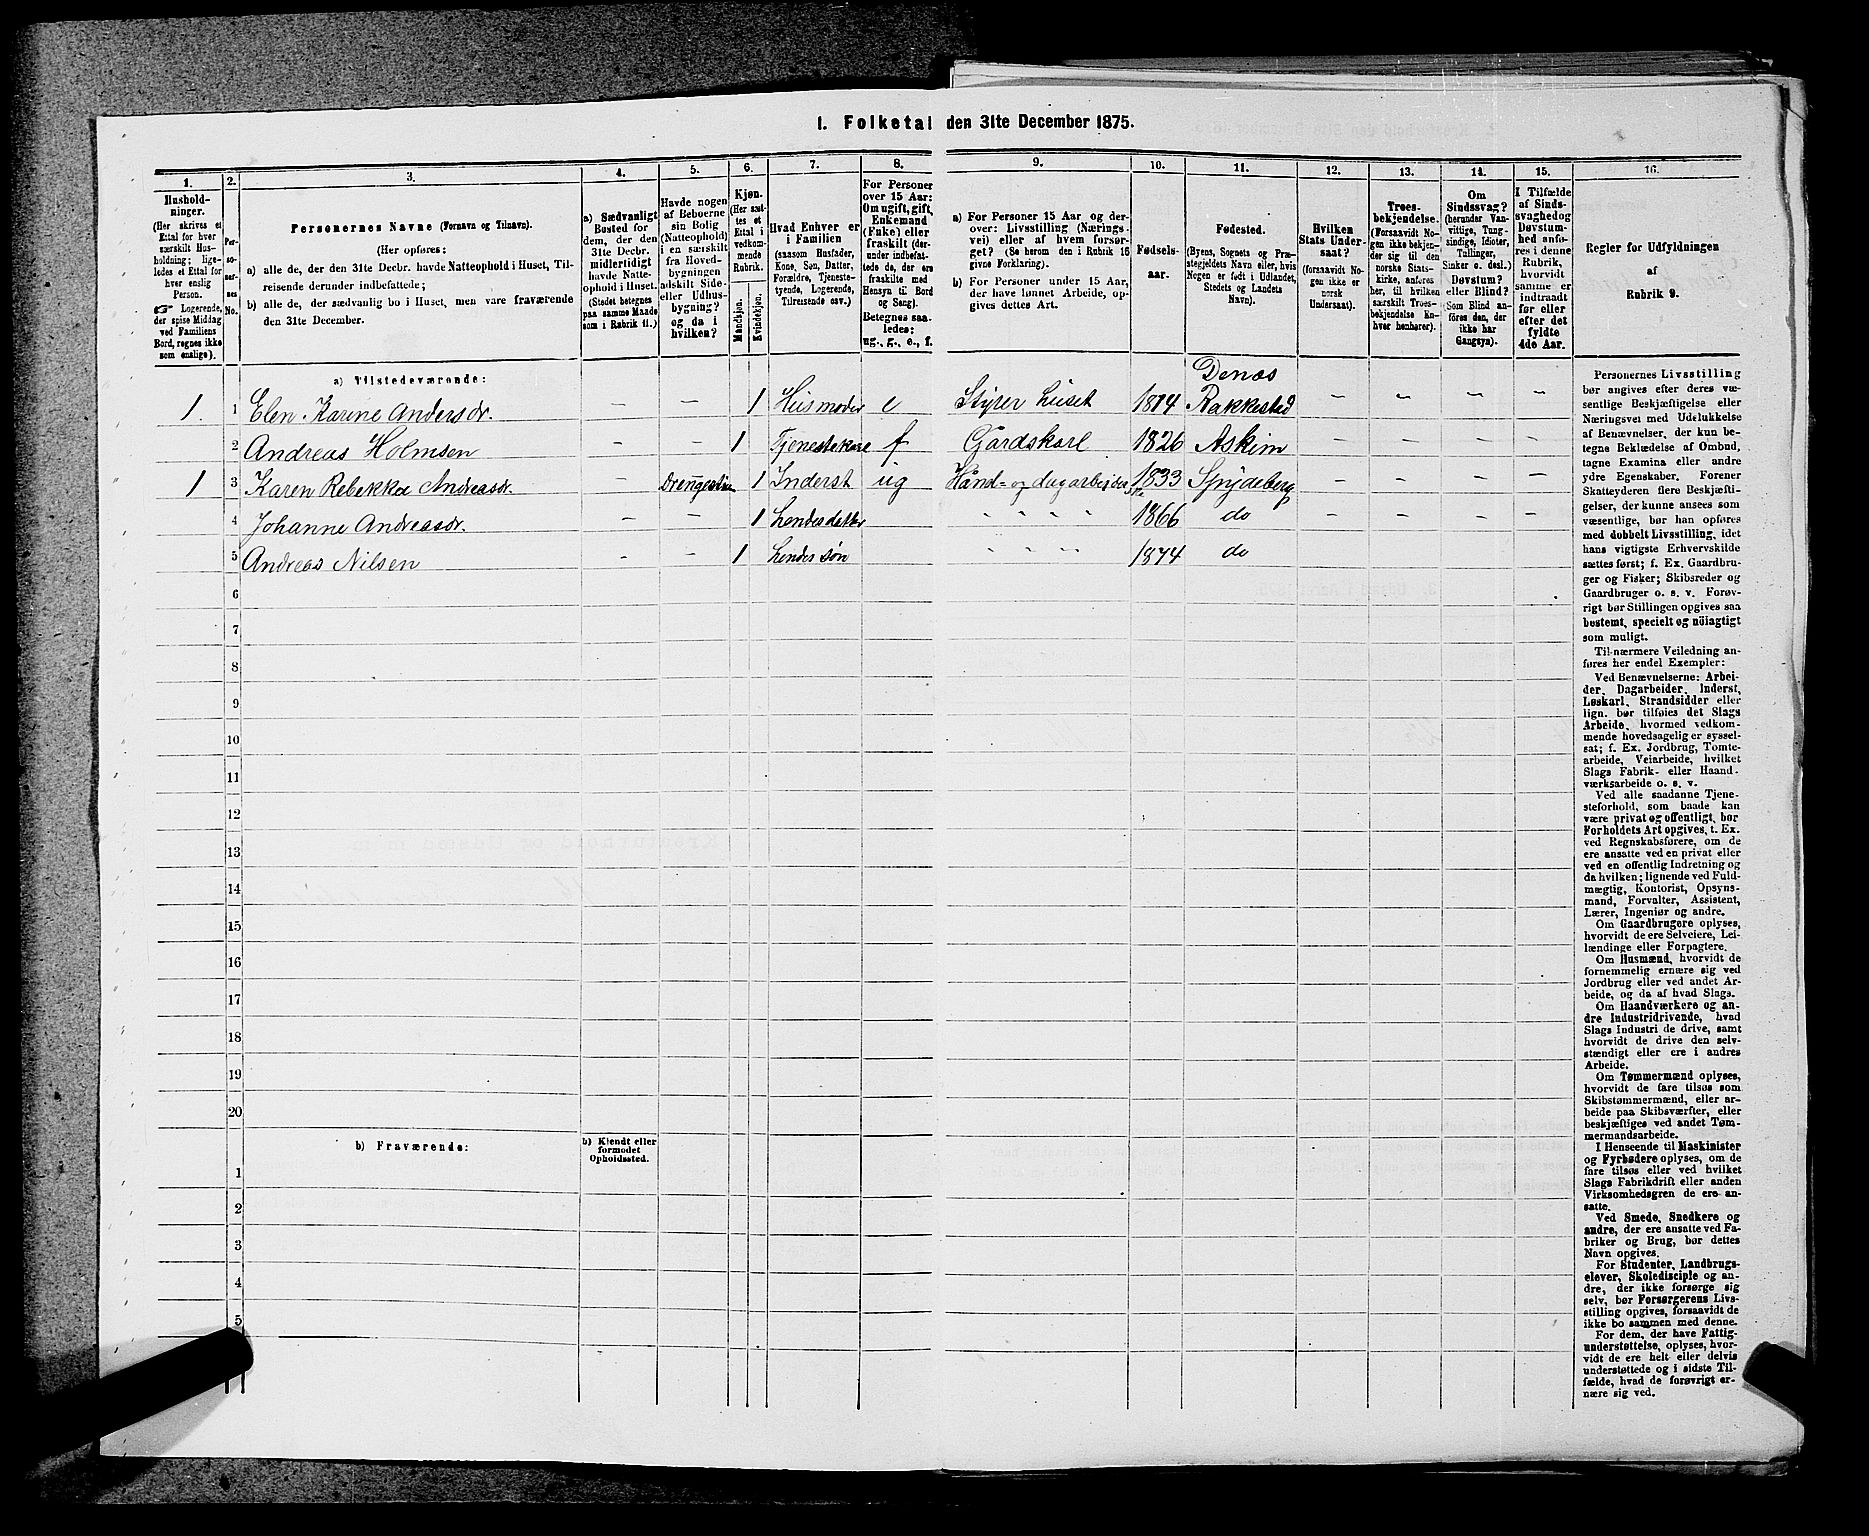 I. Folketal den 31te December 1875.
1. 2. 3. 4. 5. 6. 7. 8. 9. 10. 11. 12. 13. 14. 15. 16.
Hushold-
ninger.
(Her skrives et
Ettal for hver
særskilt Hus-
holdning; lige-
ledes et Ettal for
hver enslig
Person.
☞ Logerende,
der spise Middag
ved Familiens
Bord, regnes ikke
som enslige).
Per-
so-
ner-
nes
No.
Personernes Navne (Fornavn og Tilnavn).
(Her opføres:
a) alle de, der den 31te Decbr. havde Natteophold i Huset, Til-
reisende derunder indbefattede;
b) alle de, der sædvanlig bo i Huset, men vare fraværende
den 31te December.
a) Sædvanligt
Bosted for
dem, der den
31te Decbr.
midlertidigt
havde Natte-
ophold i Huset.
(Stedet betegnes
paa samme Maade
som i Rubrik 11.)
Havde nogen
af Beboerne
sin Bolig
(Natteophold)
i en særskilt
fra Hoved-
bygningen
adskilt Side-
eller Udhus-
bygning?
og da i
hvilken?
Kjøn.
(Her sæt-
tes et
Ettal i
vedkom-
mende
Rubrik.
Mandkjøn.
Kvindekjøn.
Hvad Enhver er
i Familien
(saasom Husfader,
Kone, Søn, Datter,
Forældre, Tjeneste-
tyende, Logerende,
Tilreisende osv.)
For Personer
over 15 Aar:
Om ugift, gift,
Enkemand
(Enke) eller
fraskilt (der-
under indbefat-
tede de, der ere
fraskilte med
Hensyn til Bord
og Seng).
Betegnes saa-
ledes:
ug., g., e., f.
a) For Personer 15 Aar og der-
over: Livsstilling (Nærings-
vei) eller af hvem forsør-
get? (Se herom den i Rubrik 16
givne Forklaring).
b) For Personer under 15 Aar,
der have lønnet Arbeide, op-
gives dettes Art.
Fødsels-
aar.
Fødested.
(Byens, Sognets og Præ-
stegjeldets Navn eller, hvis
Nogen er født i Udlandet,
Stedets og Landets
Navn).
Hvilken
Stats Under-
saat?
(forsaavidt No-
gen ikke er
norsk
Undersaat).
Troes-
bekjendelse.
(Forsaavidt No-
gen ikke bekjen-
der sig til den
norske Stats-
kirke, anføres
her, til hvilken
særskilt Troes-
bekjendelse En-
hver henhører).
Om
Sindssvag?
(herunder Van-
vittige, Tung-
sindige, Idioter,
Tullinger,
Sinker o. desl.)
Døvstum?
eller Blind?
Som Blind an-
føres den, der
ikke har
Gangsyn).
I Tilfælde
af Sinds-
svaghed og
Døvstum-
hed anfø-
res i denne
Rubrik,
hvorvidt
samme er
indtraadt
før eller
efter det
fyldte
4de Aar.
Regler for Udfyldningen
af
Rubrik 9.
a) Tilstedeværende:
Denes
1. 1 Elen Karine Andersdr. – – 1 Husmoder e Styrer huset 1814 Rakkestad – – – –
2 Andreas Holmsen – – 1 Tjenestekarl f Gårdskarl 1826 Askim – – – –
1 3 Karen Rebekka Andreasdr. – 1 Inderst ug Hånd- og dagarbejderske 1833 Spydeberg – – – –
4 Johanne Andreasdr. – – 1 hendes datter " " " " 1866 do – – – –
5 Andreas Nilsen – – 1 hendes søn " " " 1874 do
6
7
8
9
10
11
12
13
14
15
16
17
18
19
20
b) Fraværende:
b) Kjendt eller
formodet
Opholdssted.
1
2
3
4
5
Personernes Livsstilling
bør angives efter deres væ-
sentlige Beskjæftigelse eller
Næringsvei med Udelukkelse
af Benævnelser, der kun be-
tegne Beklædelse af Ombud,
tagne Examina eller andre
ydre Egenskaber. Forener
Skatteyderen flere Beskjæfti-
gelser, der kunne ansees som
væsentlige, bør han opføres
med dobbelt Livsstilling, idet
hans vigtigste Erhvervskilde
sættes først; f. Ex. Gaardbru-
ger og Fisker; Skibsreder og
Gaardbruger o. s. v. Forøv-
rigt bør Stillingen opgives saa
bestemt, specielt og nöiagtigt
som muligt.
Til nærmere Veiledning an-
føres her endel Exempler:
Ved Benævnelserne: Arbei-
der, Dagarbeider, Inderst,
Løskarl, Strandsidder eller
lign. bør tilføies det Slags
Arbeide, hvormed vedkom-
mende hovedsagelig er syssel-
sat; f. Ex. Jordbrug, Tomte-
arbeide, Veiarbeide, hvilket
Slags Fabrik- eller Haand-
værksarbeide o. s. v.
Ved alle saadanne Tjene-
steforhold, som baade kan
være privat og offentligt, bør
Forholdets Art opgives, t. Ex.
ved Regnskabsførere, om de
ere ansatte ved en privat eller
ved en offentlig Indretning og
da hvilken; lignende ved Fuld-
mægtig, Kontorist, Opsyns-
mand, Forvalter, Assistent,
Lærer, Ingeniør og andre.
Om Gaardbrugere oplyses,
hvorvidt de ere Selveiere, Lei-
lændinge eller Forpagtere.
Om Husmænd, hvorvidt de
fornemmelig ernære sig ved
Jordbrug eller ved andet Ar-
beide, og da af hvad Slags.
Om Haandværkere og an-
dre Industridrivende, hvad
Slags Industri de drive, samt
hvorvidt de drive den selv-
stændigt eller ere i andres
Arbeide.
Om Tømmermænd oplyses,
hvorvidt de fare tilsøs som
Skibstømmermænd, eller ar-
beide paa Skibsværfter, eller
beskjæftiges ved andet Tøm-
mermandsarbeide.
I Henseende til Maskinister
og Fyrbødere oplyses, om de
fare tilsøs eller ved hvilket
Slags Fabrikdrift eller anden
Virksomhedsgren de ere an-
satte.
Ved Smede, Snedkere og
andre, der ere ansatte ved Fa-
briker og Brug, bør dettes
Navn opgives.
For Studenter, Landbrugs-
elever, Skoledisciple og an-
dre, der ikke forsørge sig
selv, bør Forsørgerens Livs-
stilling opgives, forsaavidt de
ikke bo sammen med denne.
For dem, der have Fattig-
understøttelse, oplyses, hvor-
vidt de ere helt eller delvis
understøttede og i sidste Til-
fælde, hvad de forøvrigt er-
nære sig ved.